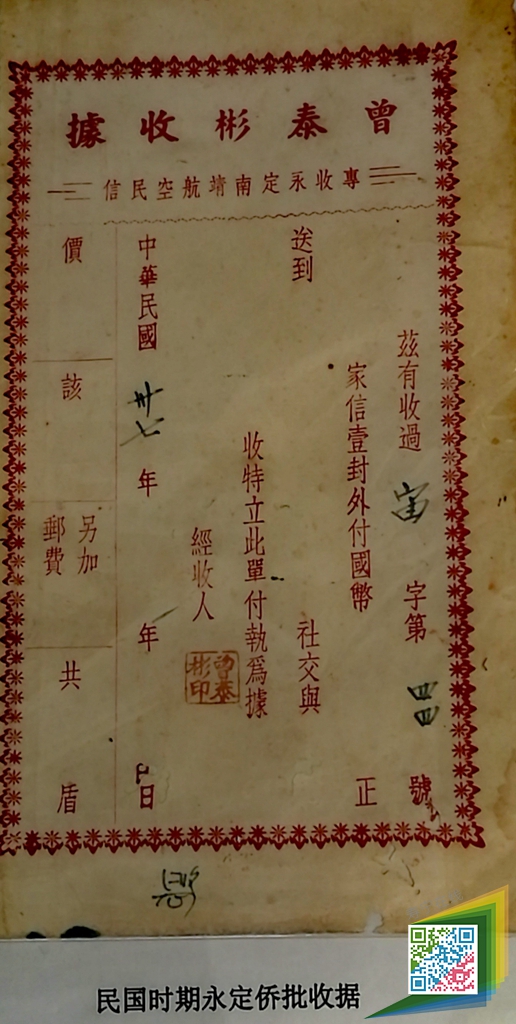 曾泰彬收據
專收永定南靖航空民信
茲有收過 宙 字第 四四 號
家信壹封外付國幣 正
送到 社交與
收特立此單付執爲據
經收人
曾泰彬印
中華民國 卅七 年 年 日
價 該 另加郵費 共 盾
民国时期永定侨批收据